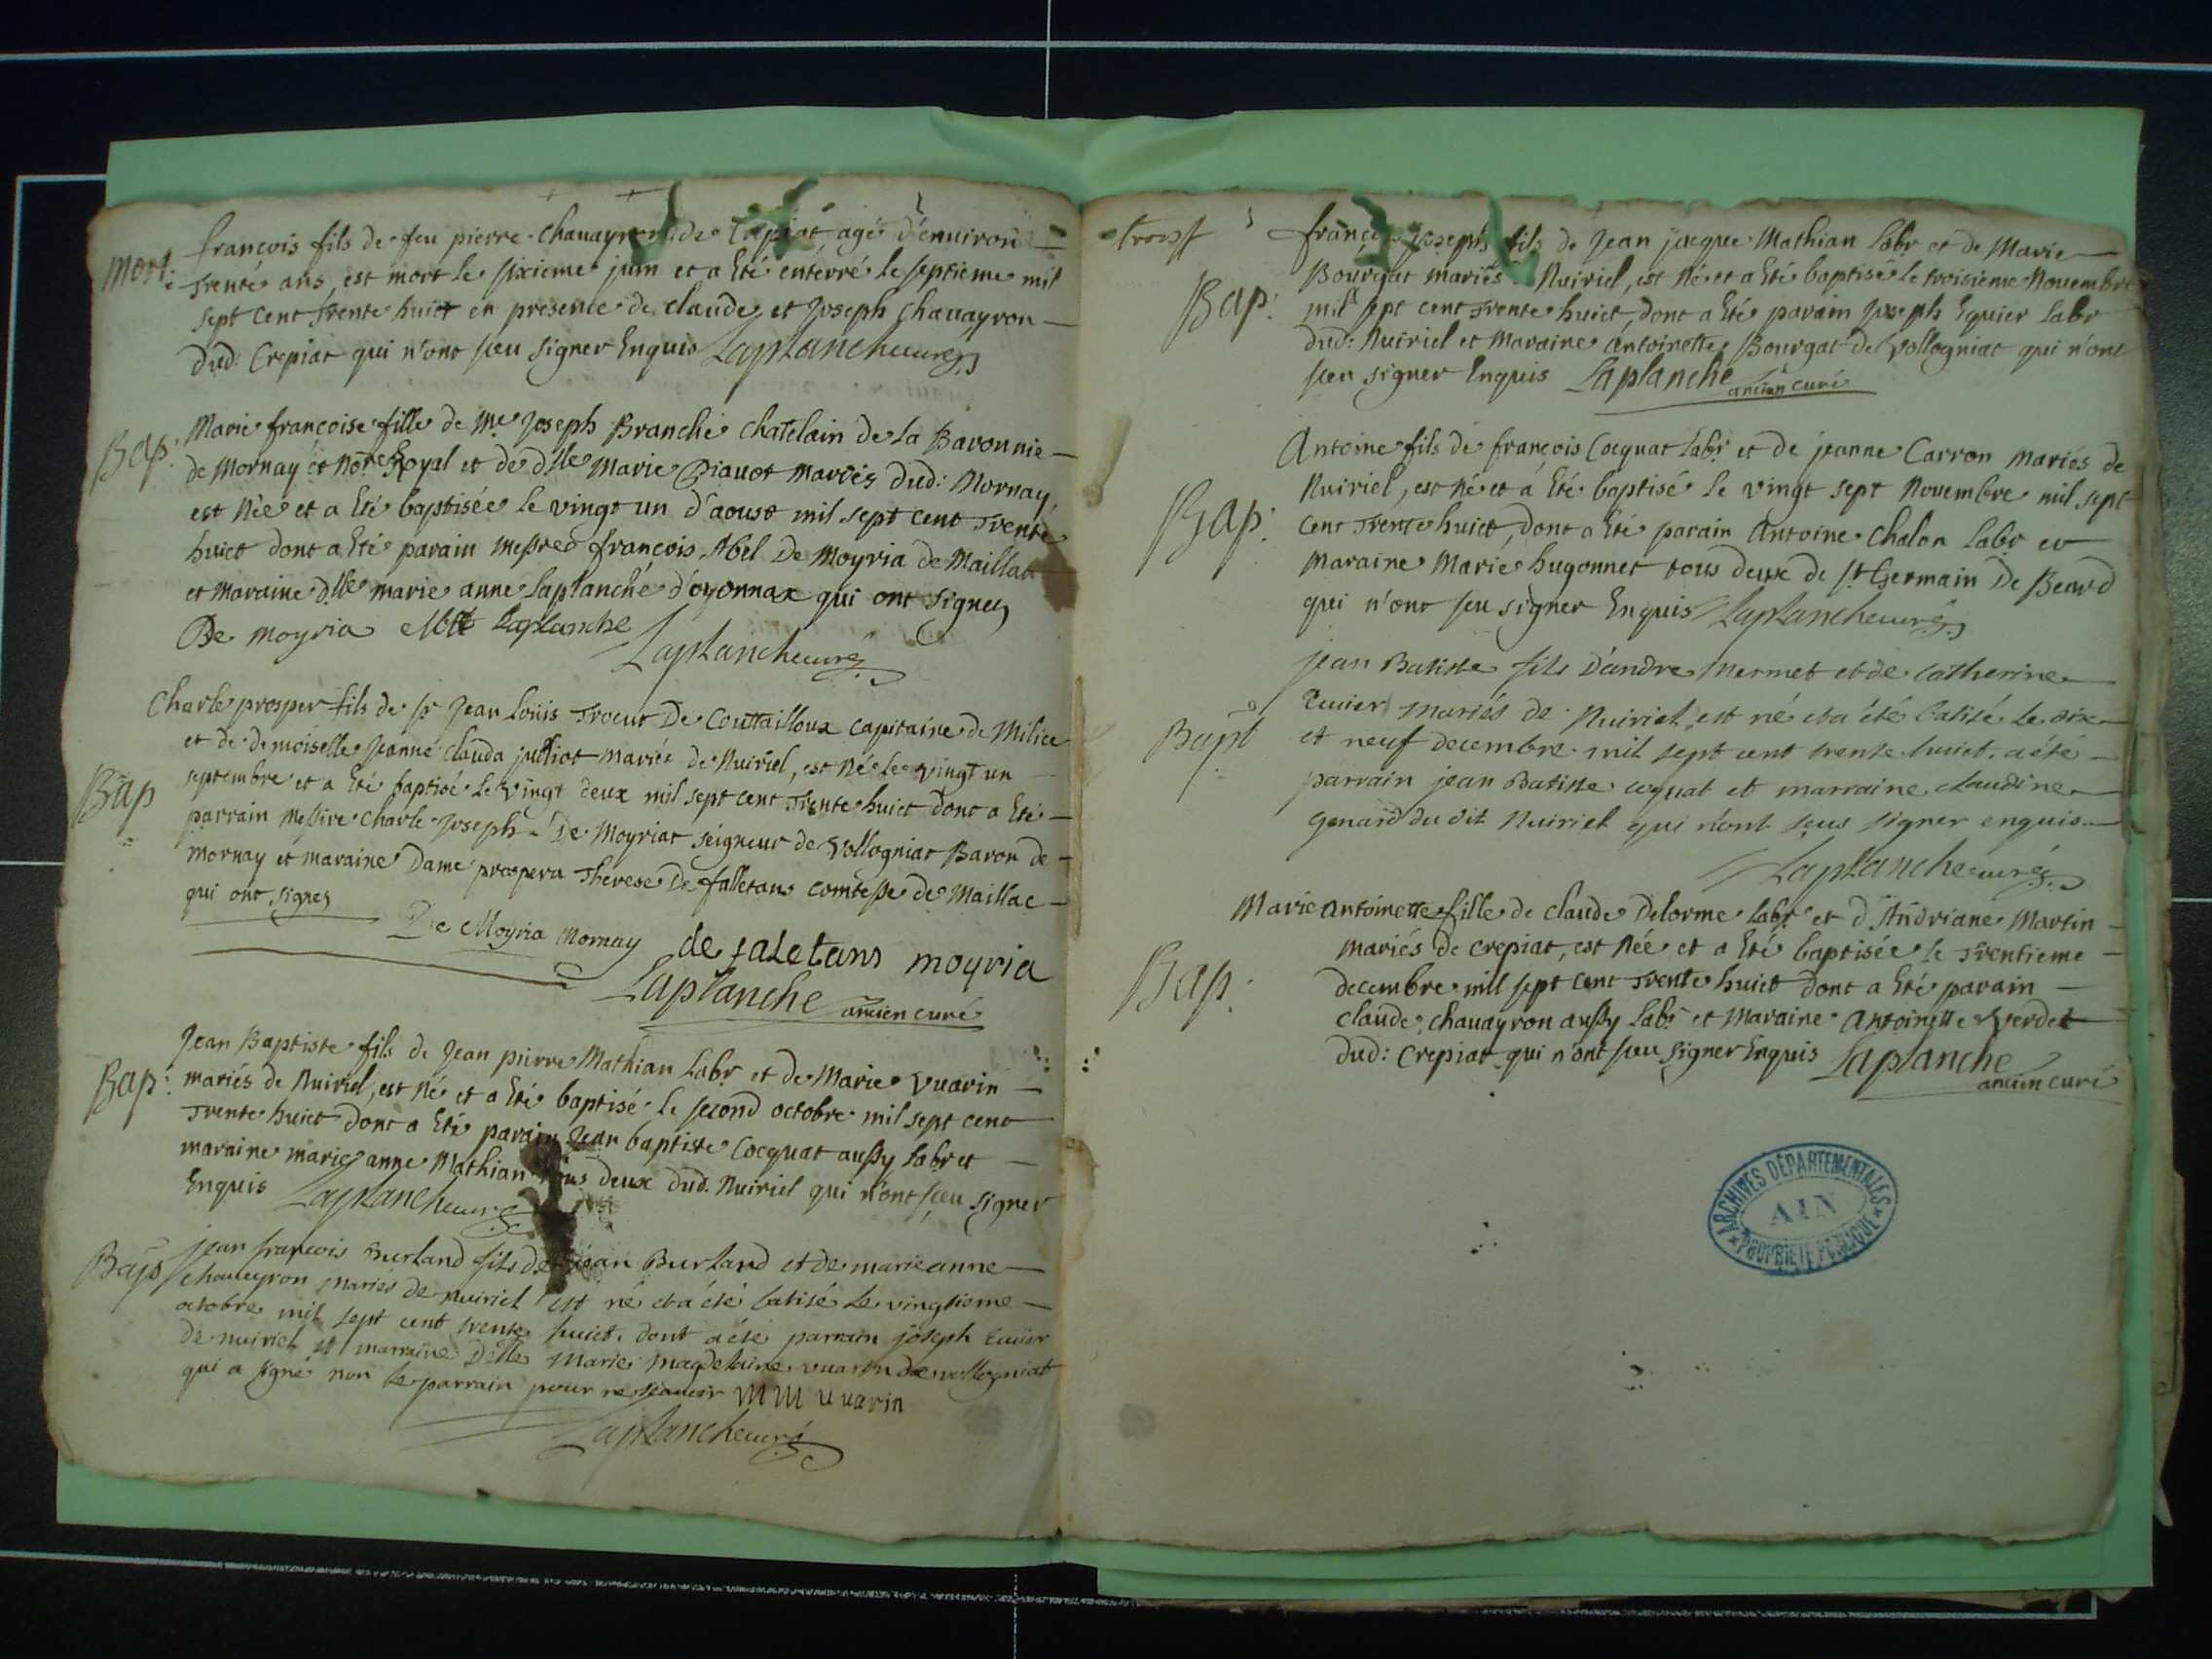 Mort:
françois fils de feu pierre chavayron de Crepiat, agé d'environ
Trente ans, est mort le sixieme juin et a Eté enterré le septieme mil
sept cent Trente huict en presence de claude et Joseph Chavayron
dud: Crepiat qui n'ont sceu signer Enquis Laplanche curé
Bap:
Marie françoise fille de Me Joseph Branche chatelain de La Baronnie
de Mornay et notre Royal et de dlle Marie Piavot mariés dud: Mornay,
est Née et a Eté baptisée le vingt un d'aoust mil sept cent Trente
huict dont a Eté parain messre françois Abel De Moyria de Maillat
et maraine dlle marie anne laplanche d'oyonnax qui ont signez
De moyria Laplanche
Laplanche curé
Charle prosper fils de sr Jean Loüis Trocut De Couttailloux capitaine de Milice
et de demoiselle Jeanne clauda julliot mariés de Nuiriel, est Né le vingt un
Bap
septembre et a Eté baptisé le vingt deux mil sept cent Trente huict dont a Eté
parrain messire Charle Joseph De Moyriat seigneur de Vollogniat Baron de
mornay et maraine Dame prospera Therese De falletans comtesse de Maillac
qui ont signez
De Moyria Mornay de faletans moyria
Laplanche ancien curé
Bap:
Jean Baptiste fils de Jean pierre Mathian Labr et de Marie Vuarin
mariés de Nuiriel, est Né et a Eté baptisé le second octobre mil sept cent
Trente huict dont a Eté parain Jean baptiste Cocquat aussy labr et
maraine marie anne Mathian tous deux dud. Nuiriel qui n'ont sceu signer
Enquis Laplanche curé
Bap
jean françois Burland fils de jean Burland et de marie anne
chaveyron mariés de nuiriel est né et a été batisé le vingtieme
octobre mil sept cent trente huict. dont a été parrain joseph Cuvier
de nuiriel et marraine Delle Marie magdelaine vuarin de vollogniat
qui a signé non le parrain pour ne sçavoir MM vuarin
Laplanche curé
françois joseph fils de Jean jacque Mathian Labr et de Marie
Bourgat mariés Nuiriel, est Né et a Eté baptisé le troisieme Novembre
Bap:
mil sept cent Trente huict, dont a Eté parain Joseph Equier labr
dud: Nuiriel et Maraine Antoinette Bourgat de Vollogniat qui n'ont
sceu signer Enquis Laplanche ancien curé
Antoine fils de françois Cocquat Labr et de jeanne Carron mariés de
Nuiriel, est Né et a Eté baptisé le vingt sept Novembre mil sept
Bap:
cent Trente huict, dont a Eté parain Antoine Chalon Labr et
maraine Marie hugonnet tous deux de St Germain De Beard
qui n'ont sceu signer Enquis Laplanche curé
jean Batiste fils D'andre Mermet et de Catherine
Cuvier mariés de Nuiriel est né et a été batisé le dix
Bapt
et neuf decembre mil sept cent trente huict. a été
parrain jean Batiste coquat et marraine claudine
Genard du dit Nuiriel qui n'ont sçus signer enquis
Laplanche curé
Marie Antoinette fille de claude Delorme labr et d'Andriane Martin
mariés de crepiat, est Née et a Eté baptisée le Trentieme
Bap:
decembre mil sept cent Trente huict dont a Eté parain
claude chavayron aussy labr et Maraine Antoinette Verdet
dud: Crepiat qui n'ont sceu signer Enquis Laplanche
ancien curé
ARCHIVES DÉPARTEMENTALES
AIN
PROPRIÉTÉ PUBLIQUE